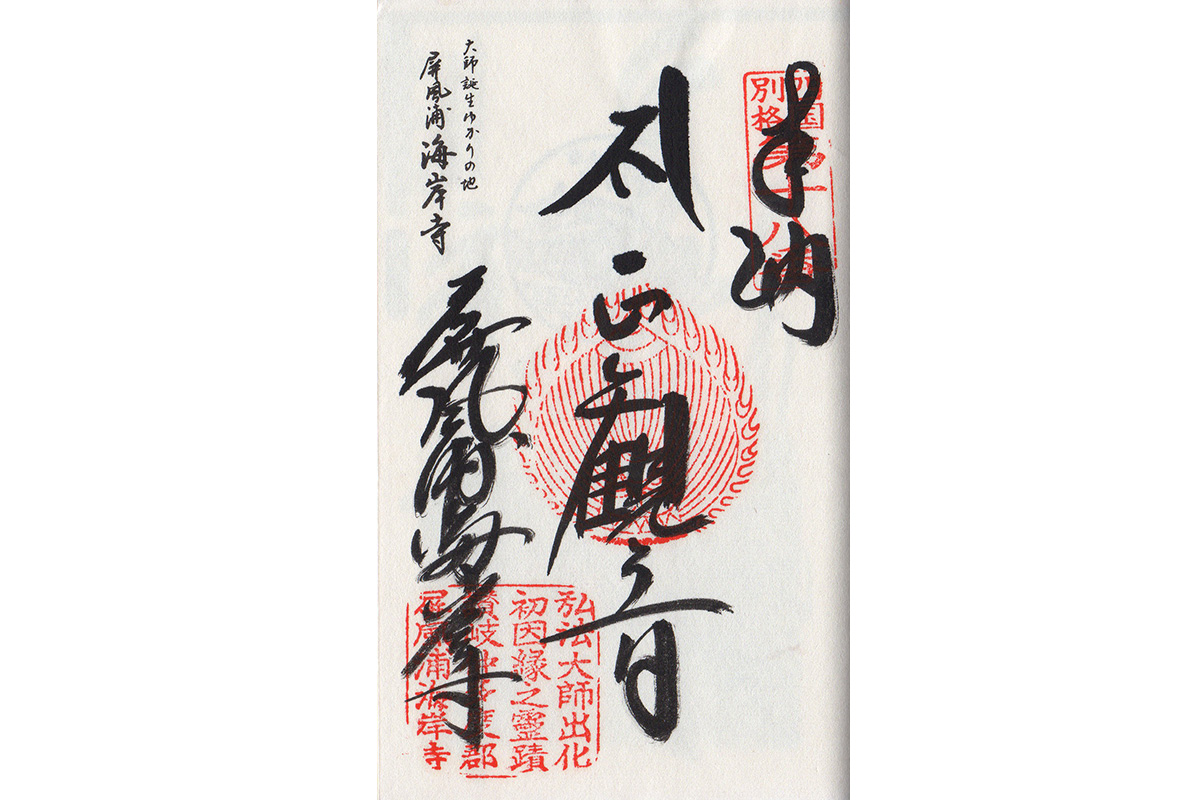 奉納
四国
別格
第十八番
正観音
屏風浦海岸寺
弘法大師出化
初因縁之靈蹟
讃岐仲多度郡
屏風浦海岸寺
大師誕生ゆかりの地
屏風浦海岸寺